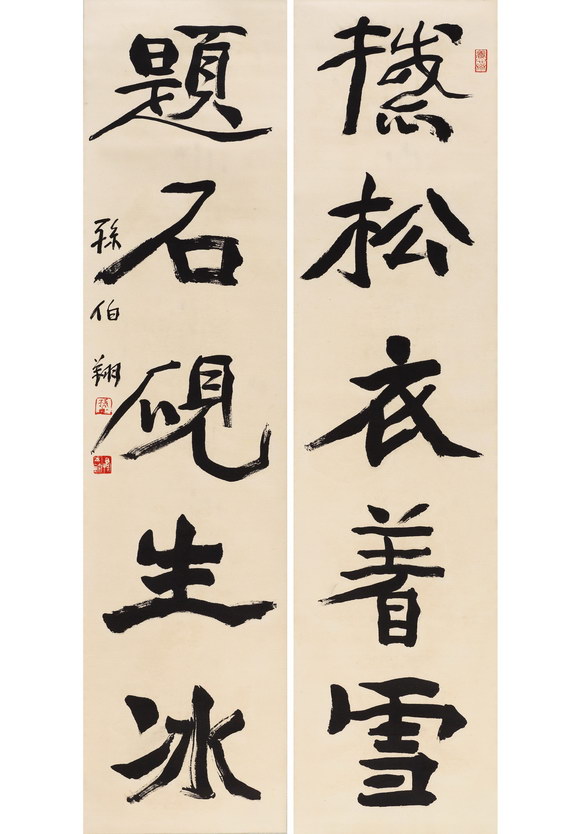 撼松衣着雪
題石硯生冰
孫伯翔